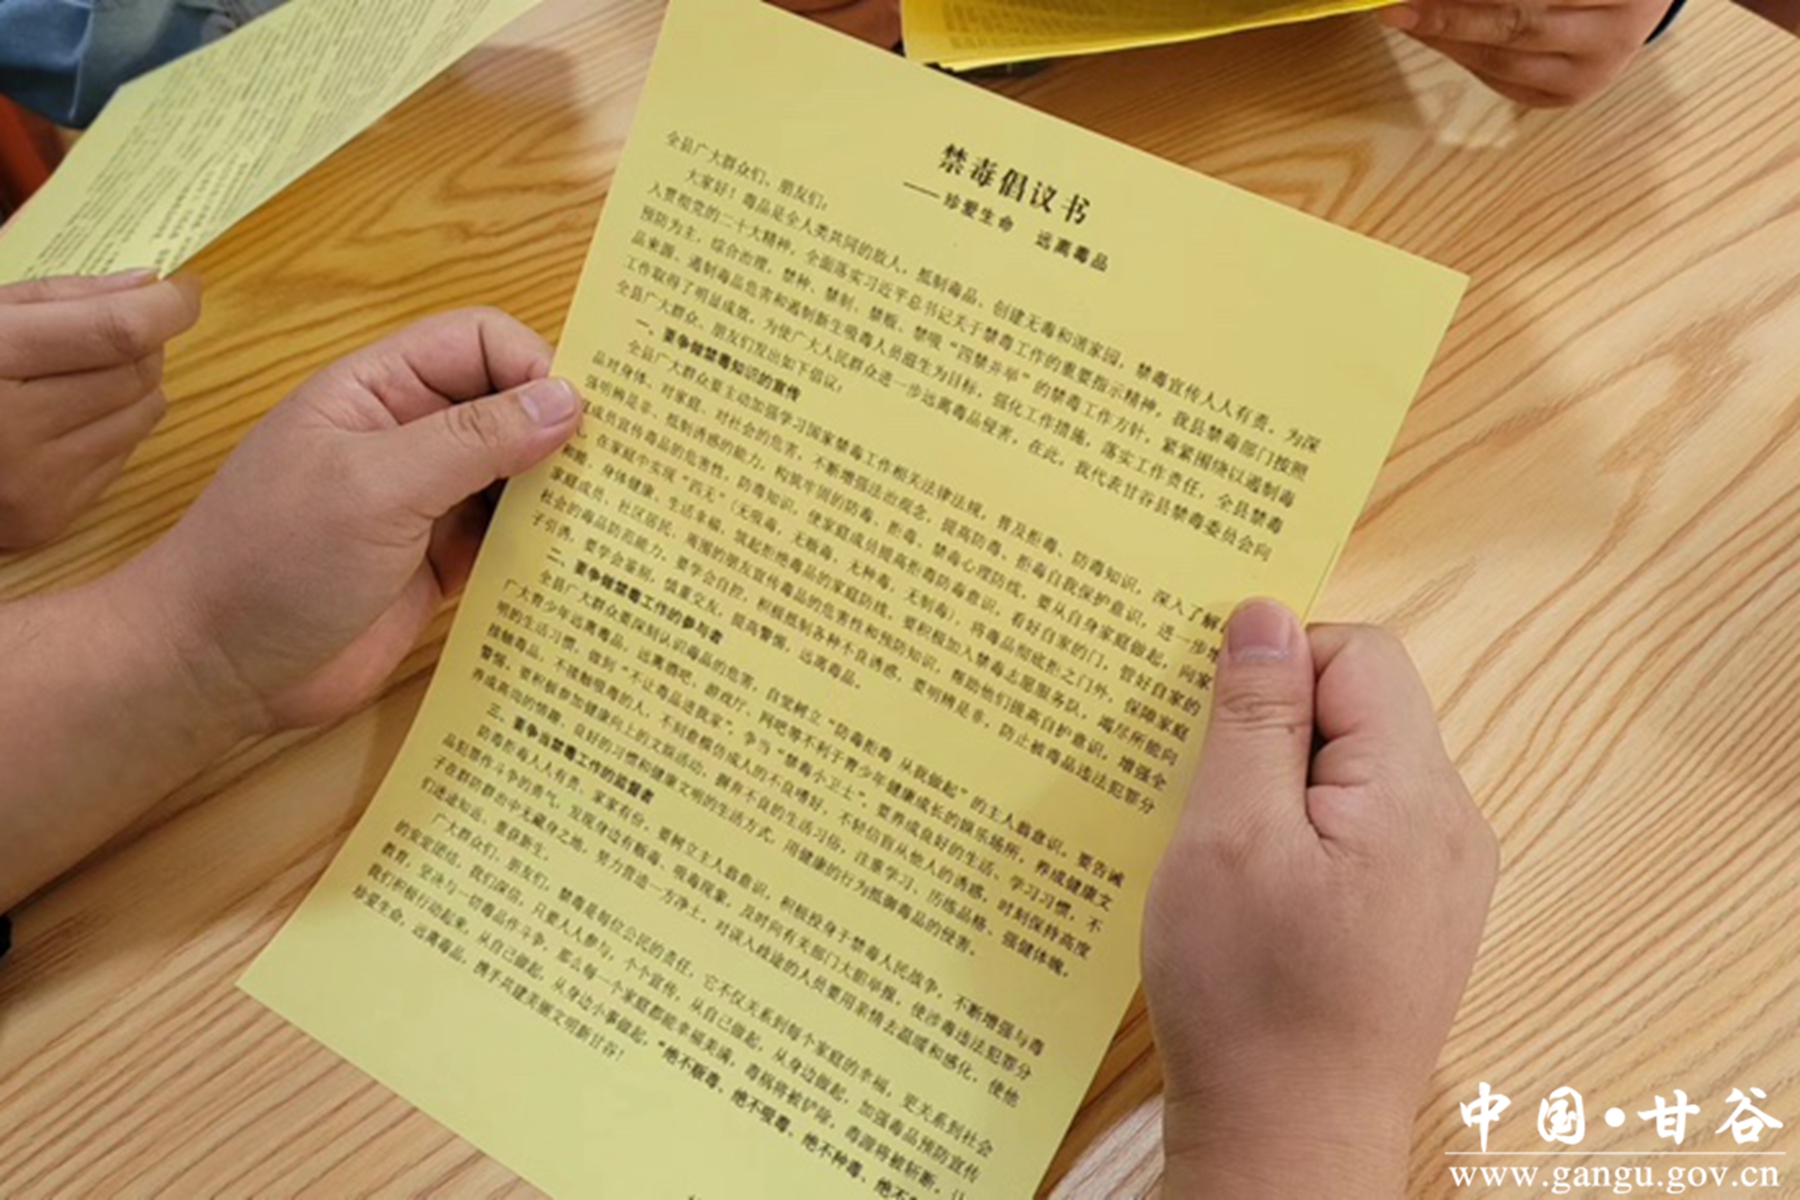 禁毒倡议书
——珍爱生命 远离毒品
全县广大群众们、朋友们:
大家好!毒品是全人类共同的敌人,抵制毒品、创建无毒和谐家园,禁毒宣传人人有责。为深
入贯彻党的二十大精神,全面落实习近平总书记关于禁毒工作的重要指示精神,我县禁毒部门按照
预防为主,综合治理,禁种、禁制、禁贩、禁吸“四禁并举”的禁毒工作方针,紧紧围绕以遏制毒
品来源、遏制毒品危害和遏制新生吸毒人员滋生为目标,强化工作措施,落实工作责任,全县禁毒
工作取得了明显成效,为使广大人民群众进一步远离毒品侵害,在此,我代表甘谷县禁毒委员会向
全县广大群众、朋友们发出如下倡议:
一、要争做禁毒知识的宣传
全县广大群众要主动加强学习国家禁毒工作相关法律法规,普及拒毒、防毒知识,深入了解
品对身体、对家庭、对社会的危害,不断增强法治观念,提高防毒、拒毒自我保护意识,进一步
强明辨是非、抵制诱惑的能力,构筑牢固的防毒、拒毒、禁毒心理防线,要从自身家庭做起,向家
成员宣传毒品的危害性、防毒知识,使家庭成员提高拒毒防毒意识,看好自家的门,管好自家的
,在家庭中实现“四无”(无吸毒、无贩毒、无种毒、无制毒),将毒品彻底拒之门外,保障家庭
和睦、身体健康、生活幸福,筑起拒绝毒品的家庭防线。要积极加入禁毒志愿服务队,竭尽所能向
家庭成员、社区居民、周围的朋友宣传毒品的危害性和预防知识,帮助他们提高自护意识,增强全
社会的毒品防范能力。要学会自控,积极抵制各种不良诱惑,要明辨是非,防止被毒品违法犯罪分
子引诱,要学会鉴别,慎重交友,提高警惕,远离毒品。
二、要争做禁毒工作的参与者
全县广大群众要深刻认识毒品的危害,自觉树立“防毒拒毒 从我做起”的主人翁意识,要告诫
广大青少年远离毒品,远离酒吧、游戏厅、网吧等不利于青少年健康成长的娱乐场所,养成健康文
明的生活习惯,做到“不让毒品进我家”,争当“禁毒小卫士”,要养成良好的生活、学习习惯,不
接触毒品,不接触吸毒的人,不刻意模仿成人的不良嗜好,不轻信盲从他人的诱惑,时刻保持高度
警惕,要积极参加健康向上的文娱活动,摒弃不良的生活习俗,注重学习、历练品格、强健体魄,
养成高尚的情趣、良好的习惯和健康文明的生活方式,用健康的行为抵御毒品的侵害。
三、要争当禁毒工作的监督者
防毒拒毒人人有责、家家有份,要树立主人翁意识,积极投身于禁毒人民战争,不断增强与毒
品犯罪作斗争的勇气,发现身边有贩毒、吸毒现象,及时向有关部门大胆举报,使涉毒违法犯罪分
子在群防群治中无藏身之地,努力营造一方净土,对误入歧途的人员要用亲情去温暖和感化,使他
们迷途知返、重获新生。
广大群众们、朋友们,禁毒是每位公民的责任,它不仅关系到每个家庭的幸福,更关系到社会
的安定团结,我们深信,只要人人参与,个个宣传,从自己做起,从身边做起,加强毒品预防宣传
教育,坚决与一切毒品作斗争,那么每一个家庭都能幸福美满,毒祸将被铲除,毒源将被斩断,让
我们积极行动起来,从自己做起,从身边小事做起,“绝不贩毒、绝不吸毒、绝不种毒、绝不
珍爱生命,远离毒品,携手共建美丽文明新甘谷!
中国·甘谷
www.gangu.gov.cn